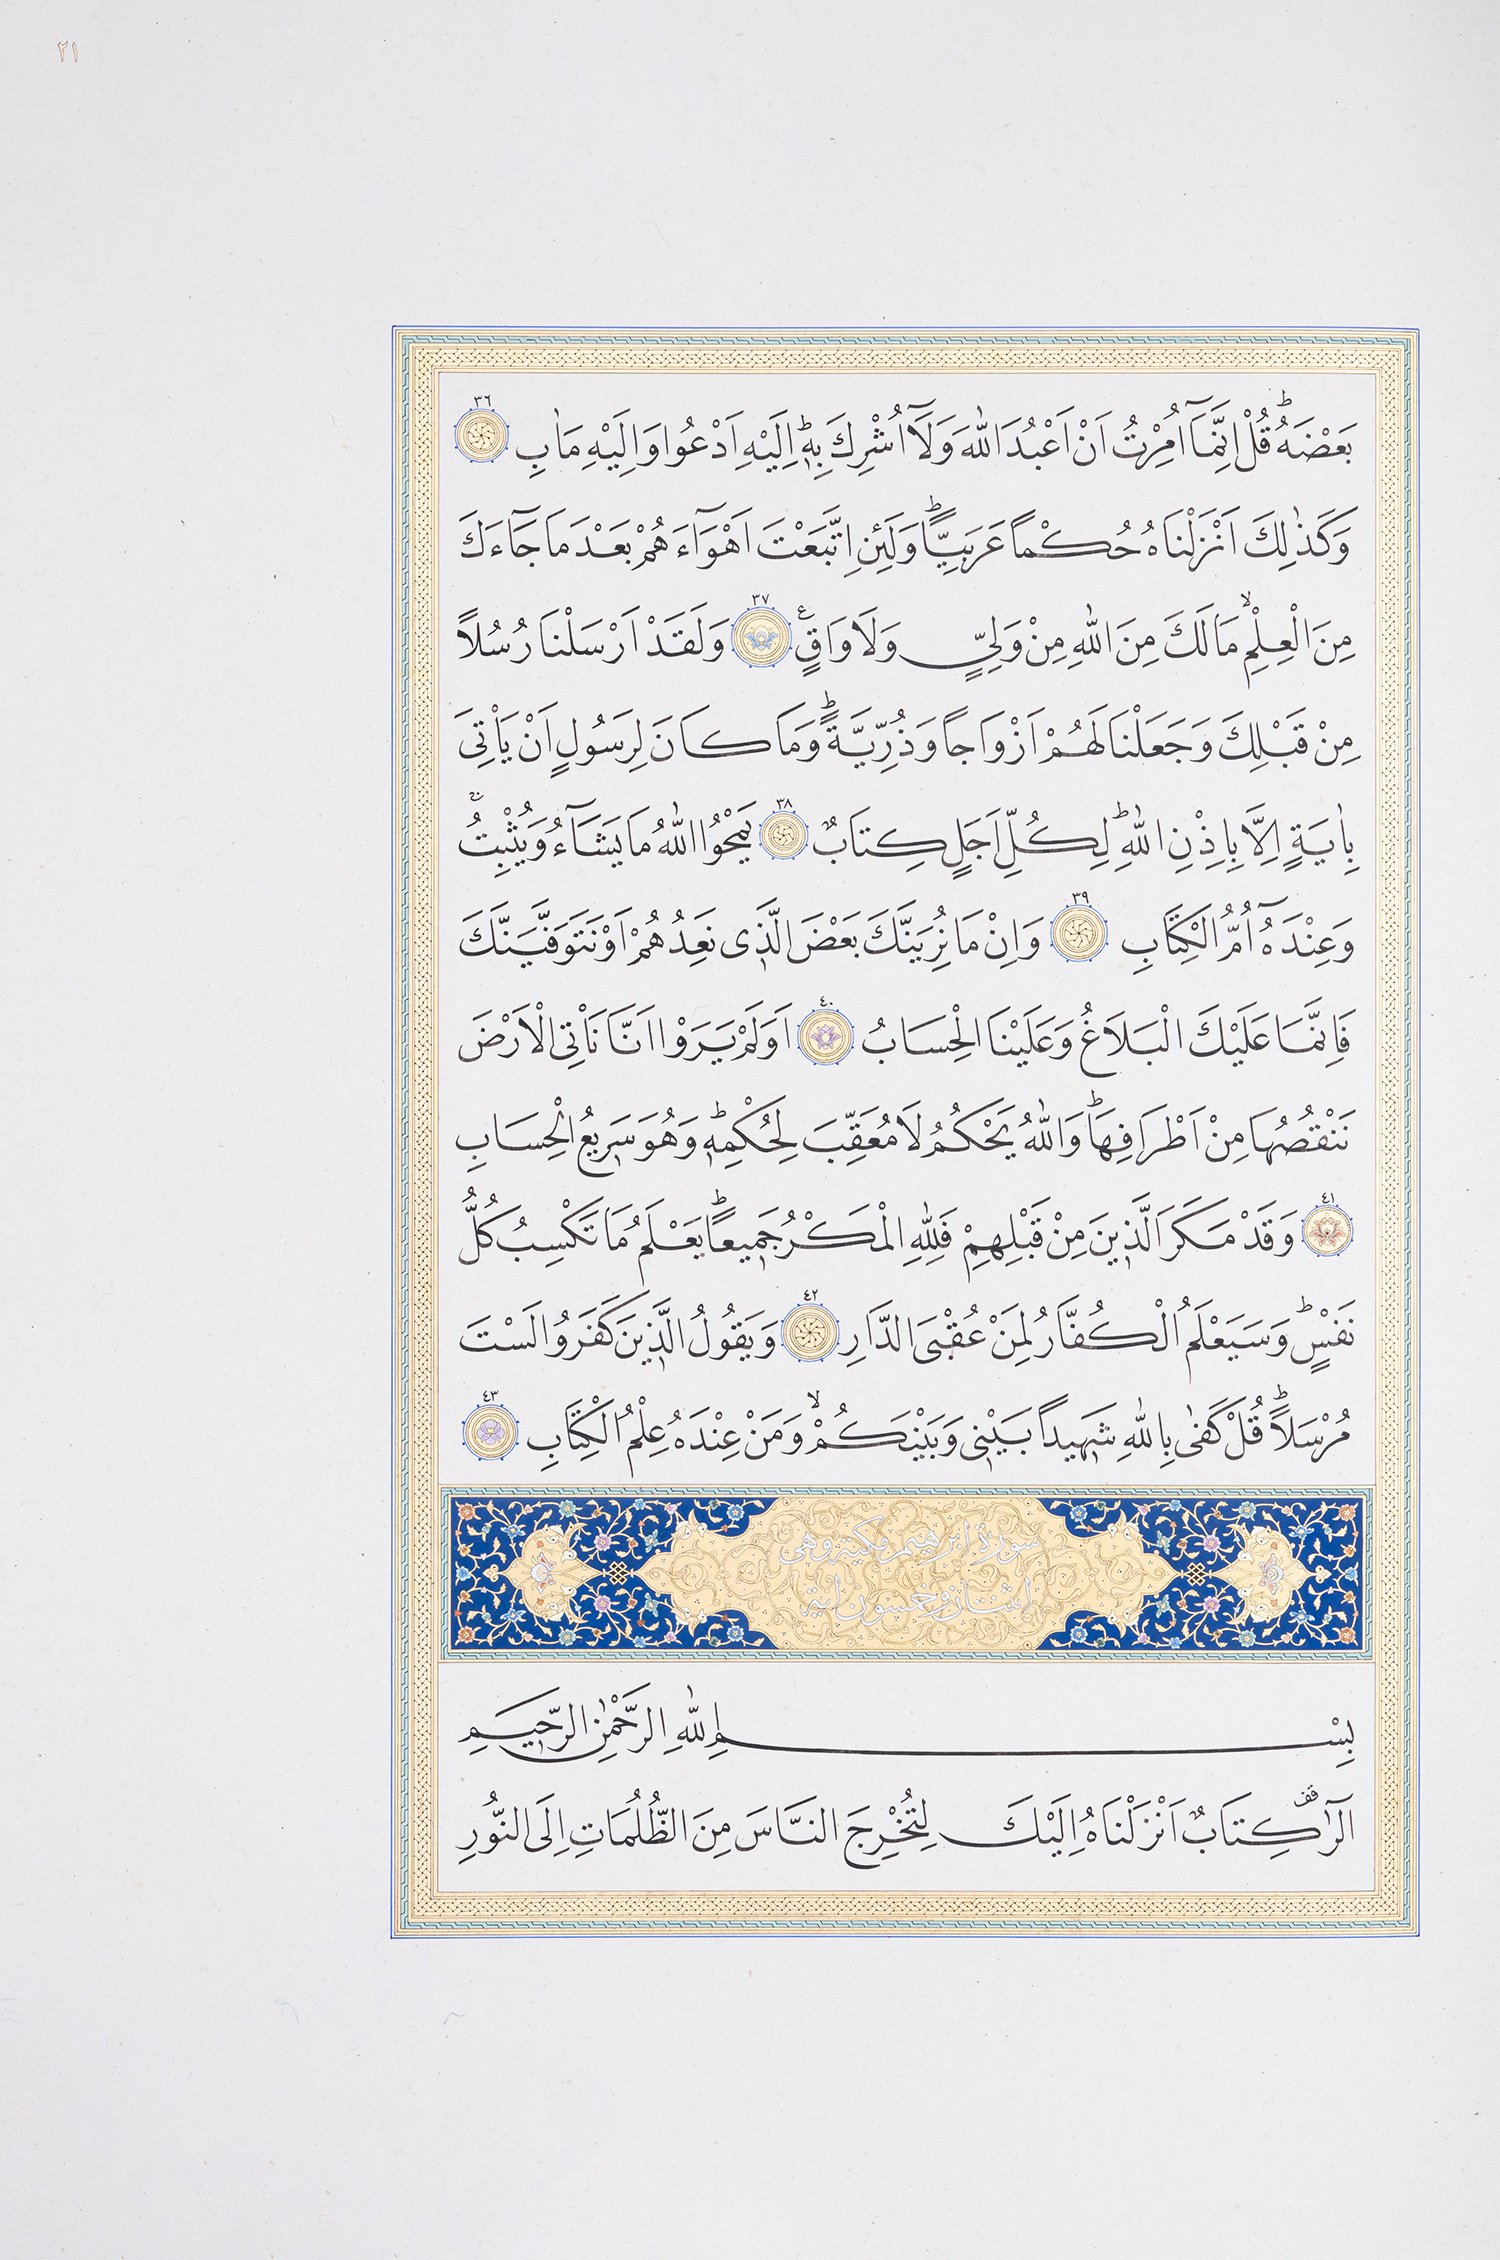 ٢١
بَعْضَهُۜ قُلْ اِنَّمَٓا اُمِرْتُ اَنْ اَعْبُدَ اللّٰهَ وَلَٓا اُشْرِكَ بِه۪ۜ اِلَيْهِ اَدْعُوا وَاِلَيْهِ مَاٰبِ ٣٦
وَكَذٰلِكَ اَنْزَلْنَاهُ حُكْماً عَرَبِياًّۜ وَلَئِنِ اتَّبَعْتَ اَهْوَٓاءَهُمْ بَعْدَ مَا جَٓاءَكَ
مِنَ الْعِلْمِۙ مَا لَكَ مِنَ اللّٰهِ مِنْ وَلِيٍّ وَلَا وَاقٍ۟ ٣٧ وَلَقَدْ اَرْسَلْنَا رُسُلاً
مِنْ قَبْلِكَ وَجَعَلْنَا لَهُمْ اَزْوَاجاً وَذُرِّيَّةًۜ وَمَا كَانَ لِرَسُولٍ اَنْ يَأْتِيَ
بِاٰيَةٍ اِلَّا بِاِذْنِ اللّٰهِۜ لِكُلِّ اَجَلٍ كِتَابٌ ٣٨ يَمْحُوا اللّٰهُ مَا يَشَٓاءُ وَيُثْبِتُۚ
وَعِنْدَهُٓ اُمُّ الْكِتَابِ ٣٩ وَاِنْ مَا نُرِيَنَّكَ بَعْضَ الَّذ۪ي نَعِدُهُمْ اَوْ نَتَوَفَّيَنَّكَ
فَاِنَّمَا عَلَيْكَ الْبَلَاغُ وَعَلَيْنَا الْحِسَابُ ٤٠ اَوَلَمْ يَرَوْا اَنَّا نَأْتِي الْاَرْضَ
نَنْقُصُهَا مِنْ اَطْرَافِهَاۜ وَاللّٰهُ يَحْكُمُ لَا مُعَقِّبَ لِحُكْمِه۪ۜ وَهُوَ سَر۪يعُ الْحِسَابِ
٤١ وَقَدْ مَكَرَ الَّذ۪ينَ مِنْ قَبْلِهِمْ فَلِلّٰهِ الْمَكْرُ جَم۪يعاًۜ يَعْلَمُ مَا تَكْسِبُ كُلُّ
نَفْسٍۜ وَسَيَعْلَمُ الْكُفَّارُ لِمَنْ عُقْبَى الدَّارِ ٤٢ وَيَقُولُ الَّذ۪ينَ كَفَرُوا لَسْتَ
مُرْسَلاًۜ قُلْ كَفٰى بِاللّٰهِ شَه۪يداً بَيْن۪ي وَبَيْنَكُمْۙ وَمَنْ عِنْدَهُ عِلْمُ الْكِتَابِ ٤٣
سورة ابرهيم مكية وهي
اثنتان وخمسون اية
بِسْمِ اللّٰهِ الرَّحْمٰنِ الرَّح۪يمِ
الٓرٰ۠ كِتَابٌ اَنْزَلْنَاهُ اِلَيْكَ لِتُخْرِجَ النَّاسَ مِنَ الظُّلُمَاتِ اِلَى النُّورِ